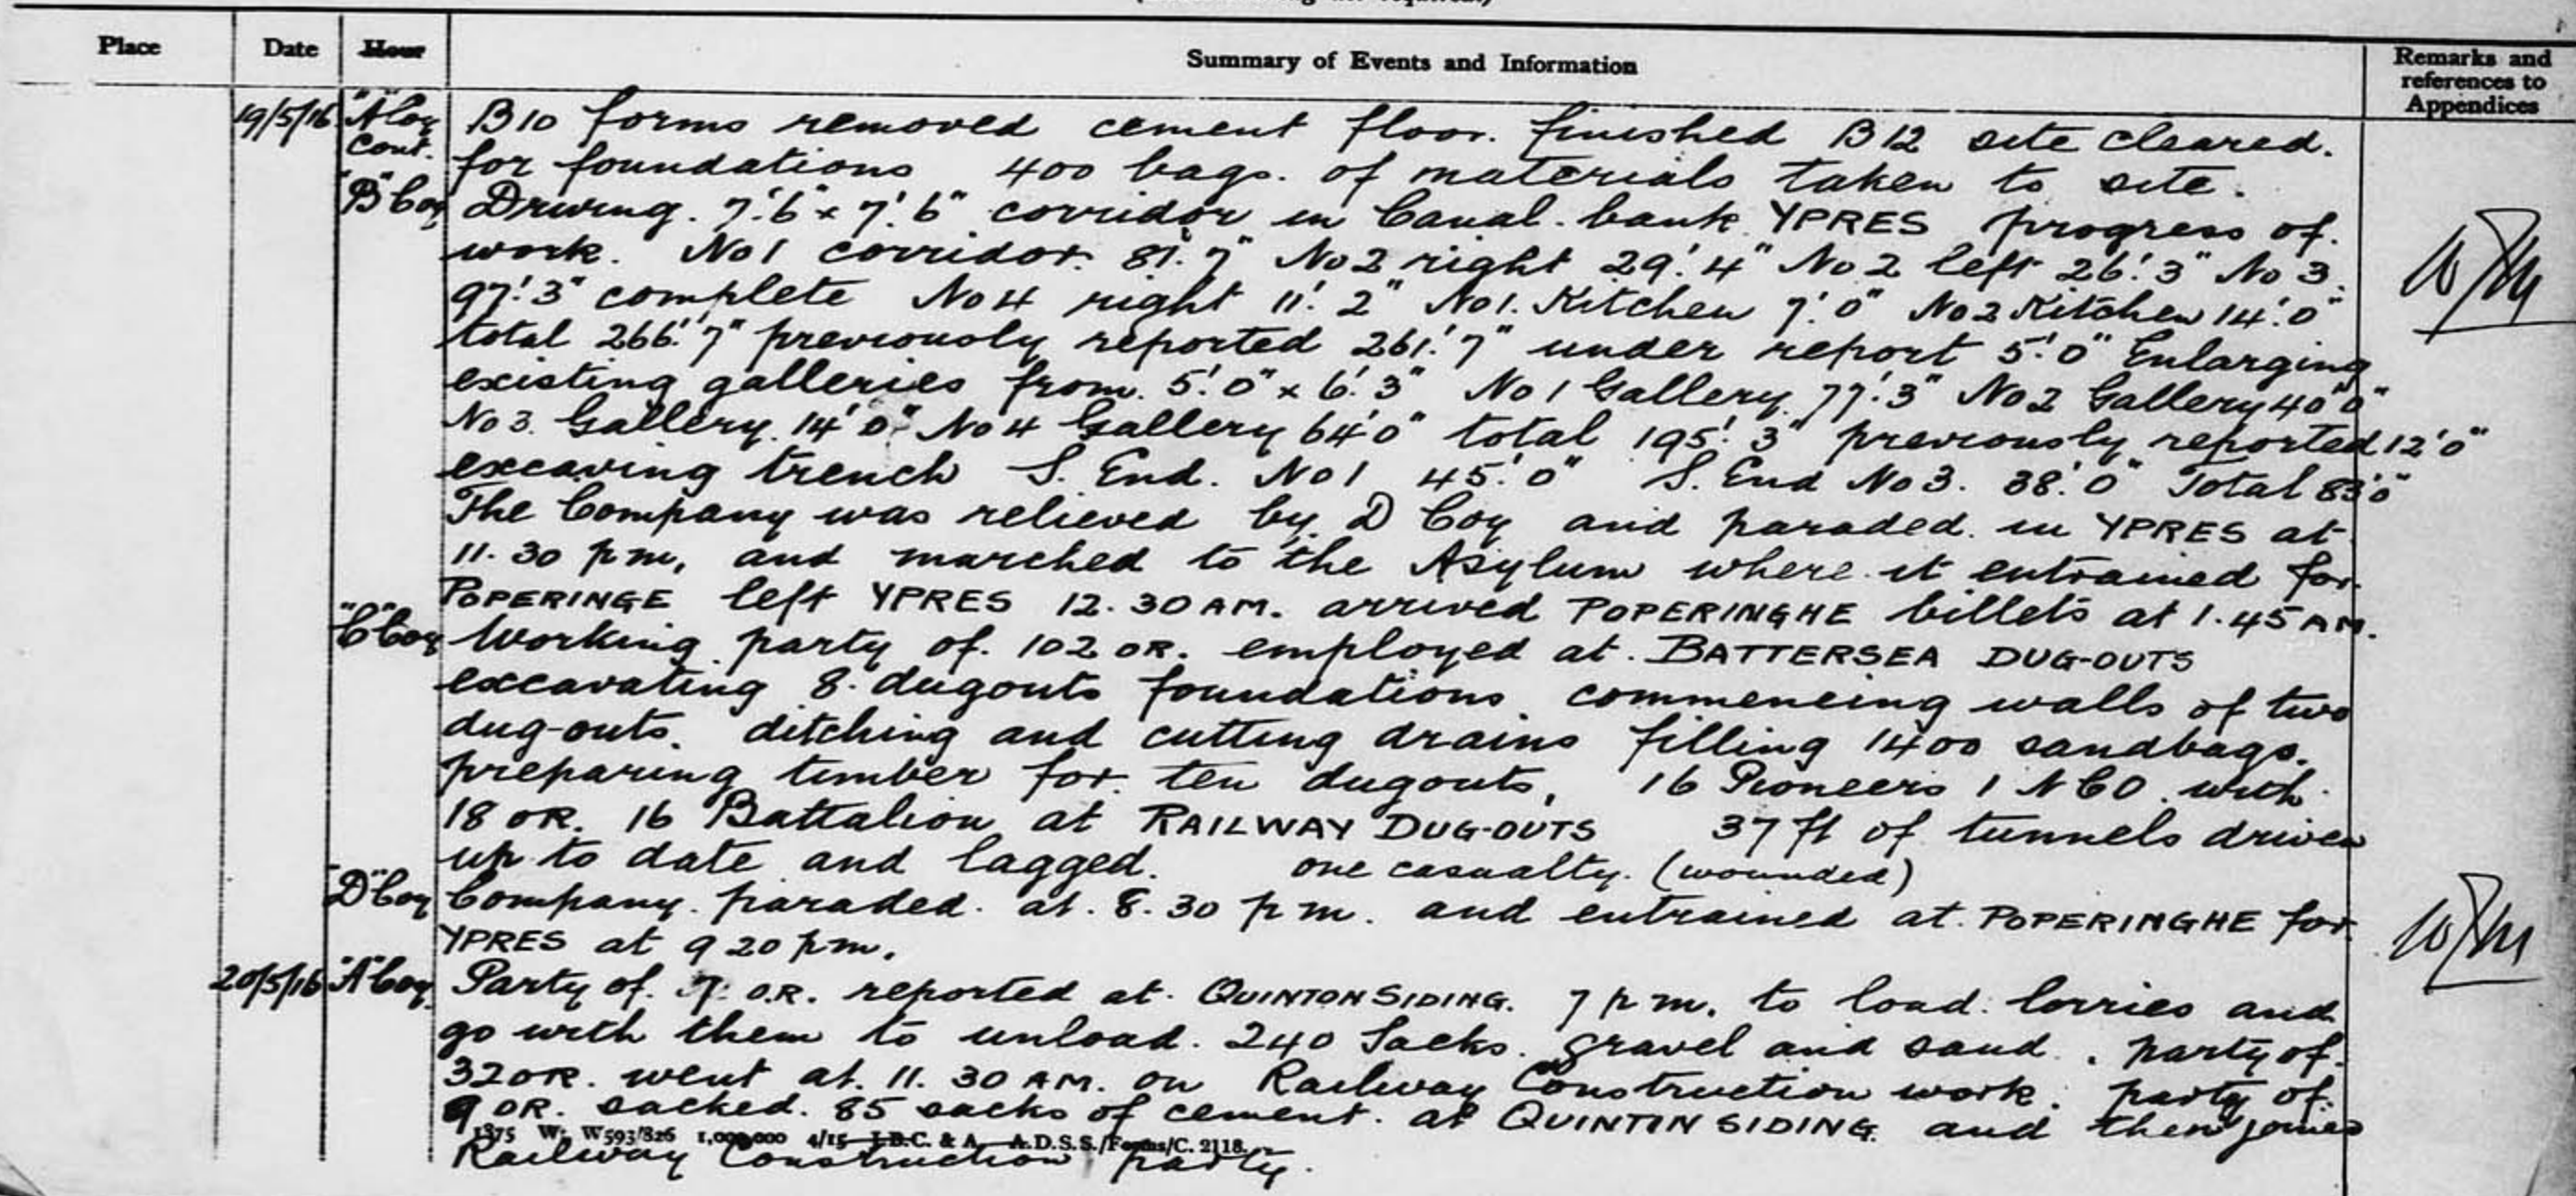 Place Date Hour Summary of Events and Information Remarks and references to Appendices
19/5/16 "A" Coy B10 forms removed cement floor. finished B12 site cleared.
Cont. for foundations 400 bags. of materials taken to site.
"B" Coy Driving. 7'.6" x 7'.6" corridor in Canal. bank YPRES progress of.
work. No 1 corridor. 81'.7" No 2 right 29'.4" No 2 left 26'.3" No 3.
97'.3" complete No 4 right 11'.2" No 1. Kitchen 7'.0" No 2 Kitchen 14'.0"
total 266'.7" previously reported 261'.7" under report 5'.0" Enlarging
existing galleries from. 5'.0" x 6'.3" No 1 Gallery. 77'.3" No 2 Gallery 40'0"
No 3. Gallery. 14'0" No 4 Gallery 64'0" total 195'.3" previously reported 12'0"
excaving trench S. End. No 1 45'.0" S. End No 3. 38'.0" Total 83'0"
The Company was relieved by D Coy and paraded. in YPRES at.
11.30 pm, and marched to the Asylum where it entrained for.
POPERINGE left YPRES 12.30 AM. arrived POPERINGHE billets at 1.45 AM.
"C" Coy Working party of. 102 OR. employed at. BATTERSEA DUG-OUTS
excavating 8. dugouts foundations commencing walls of two
dug-outs. ditching and cutting drains filling 1400 sandbags.
preparing timber for. ten dugouts, 16 Pioneers 1 NCO. with
18 OR. 16 Battalion at RAILWAY DUG-OUTS 37 ft of tunnels driven
up to date and lagged. one casualty. (wounded)
"D" Coy Company. paraded. at. 8.30 pm. and entrained at. POPERINGHE for.
YPRES at 9 20 pm.
20/5/16 "A" Coy. Party of. 7. O.R. reported at. QUINTON SIDING. 7 pm. to load. lorries and
go with them to unload. 240 Sacks. gravel and sand. party of.
32 OR. went at. 11.30 AM. on Railway Construction work. party of.
9 OR. sacked. 85 sacks of cement. at QUINTIN SIDING. and then joined
1375 Wt. W593/826 1,000,000 4/15 J.B.C. & A. A.D.S.S./Forms/C. 2118.
Railway Construction party.